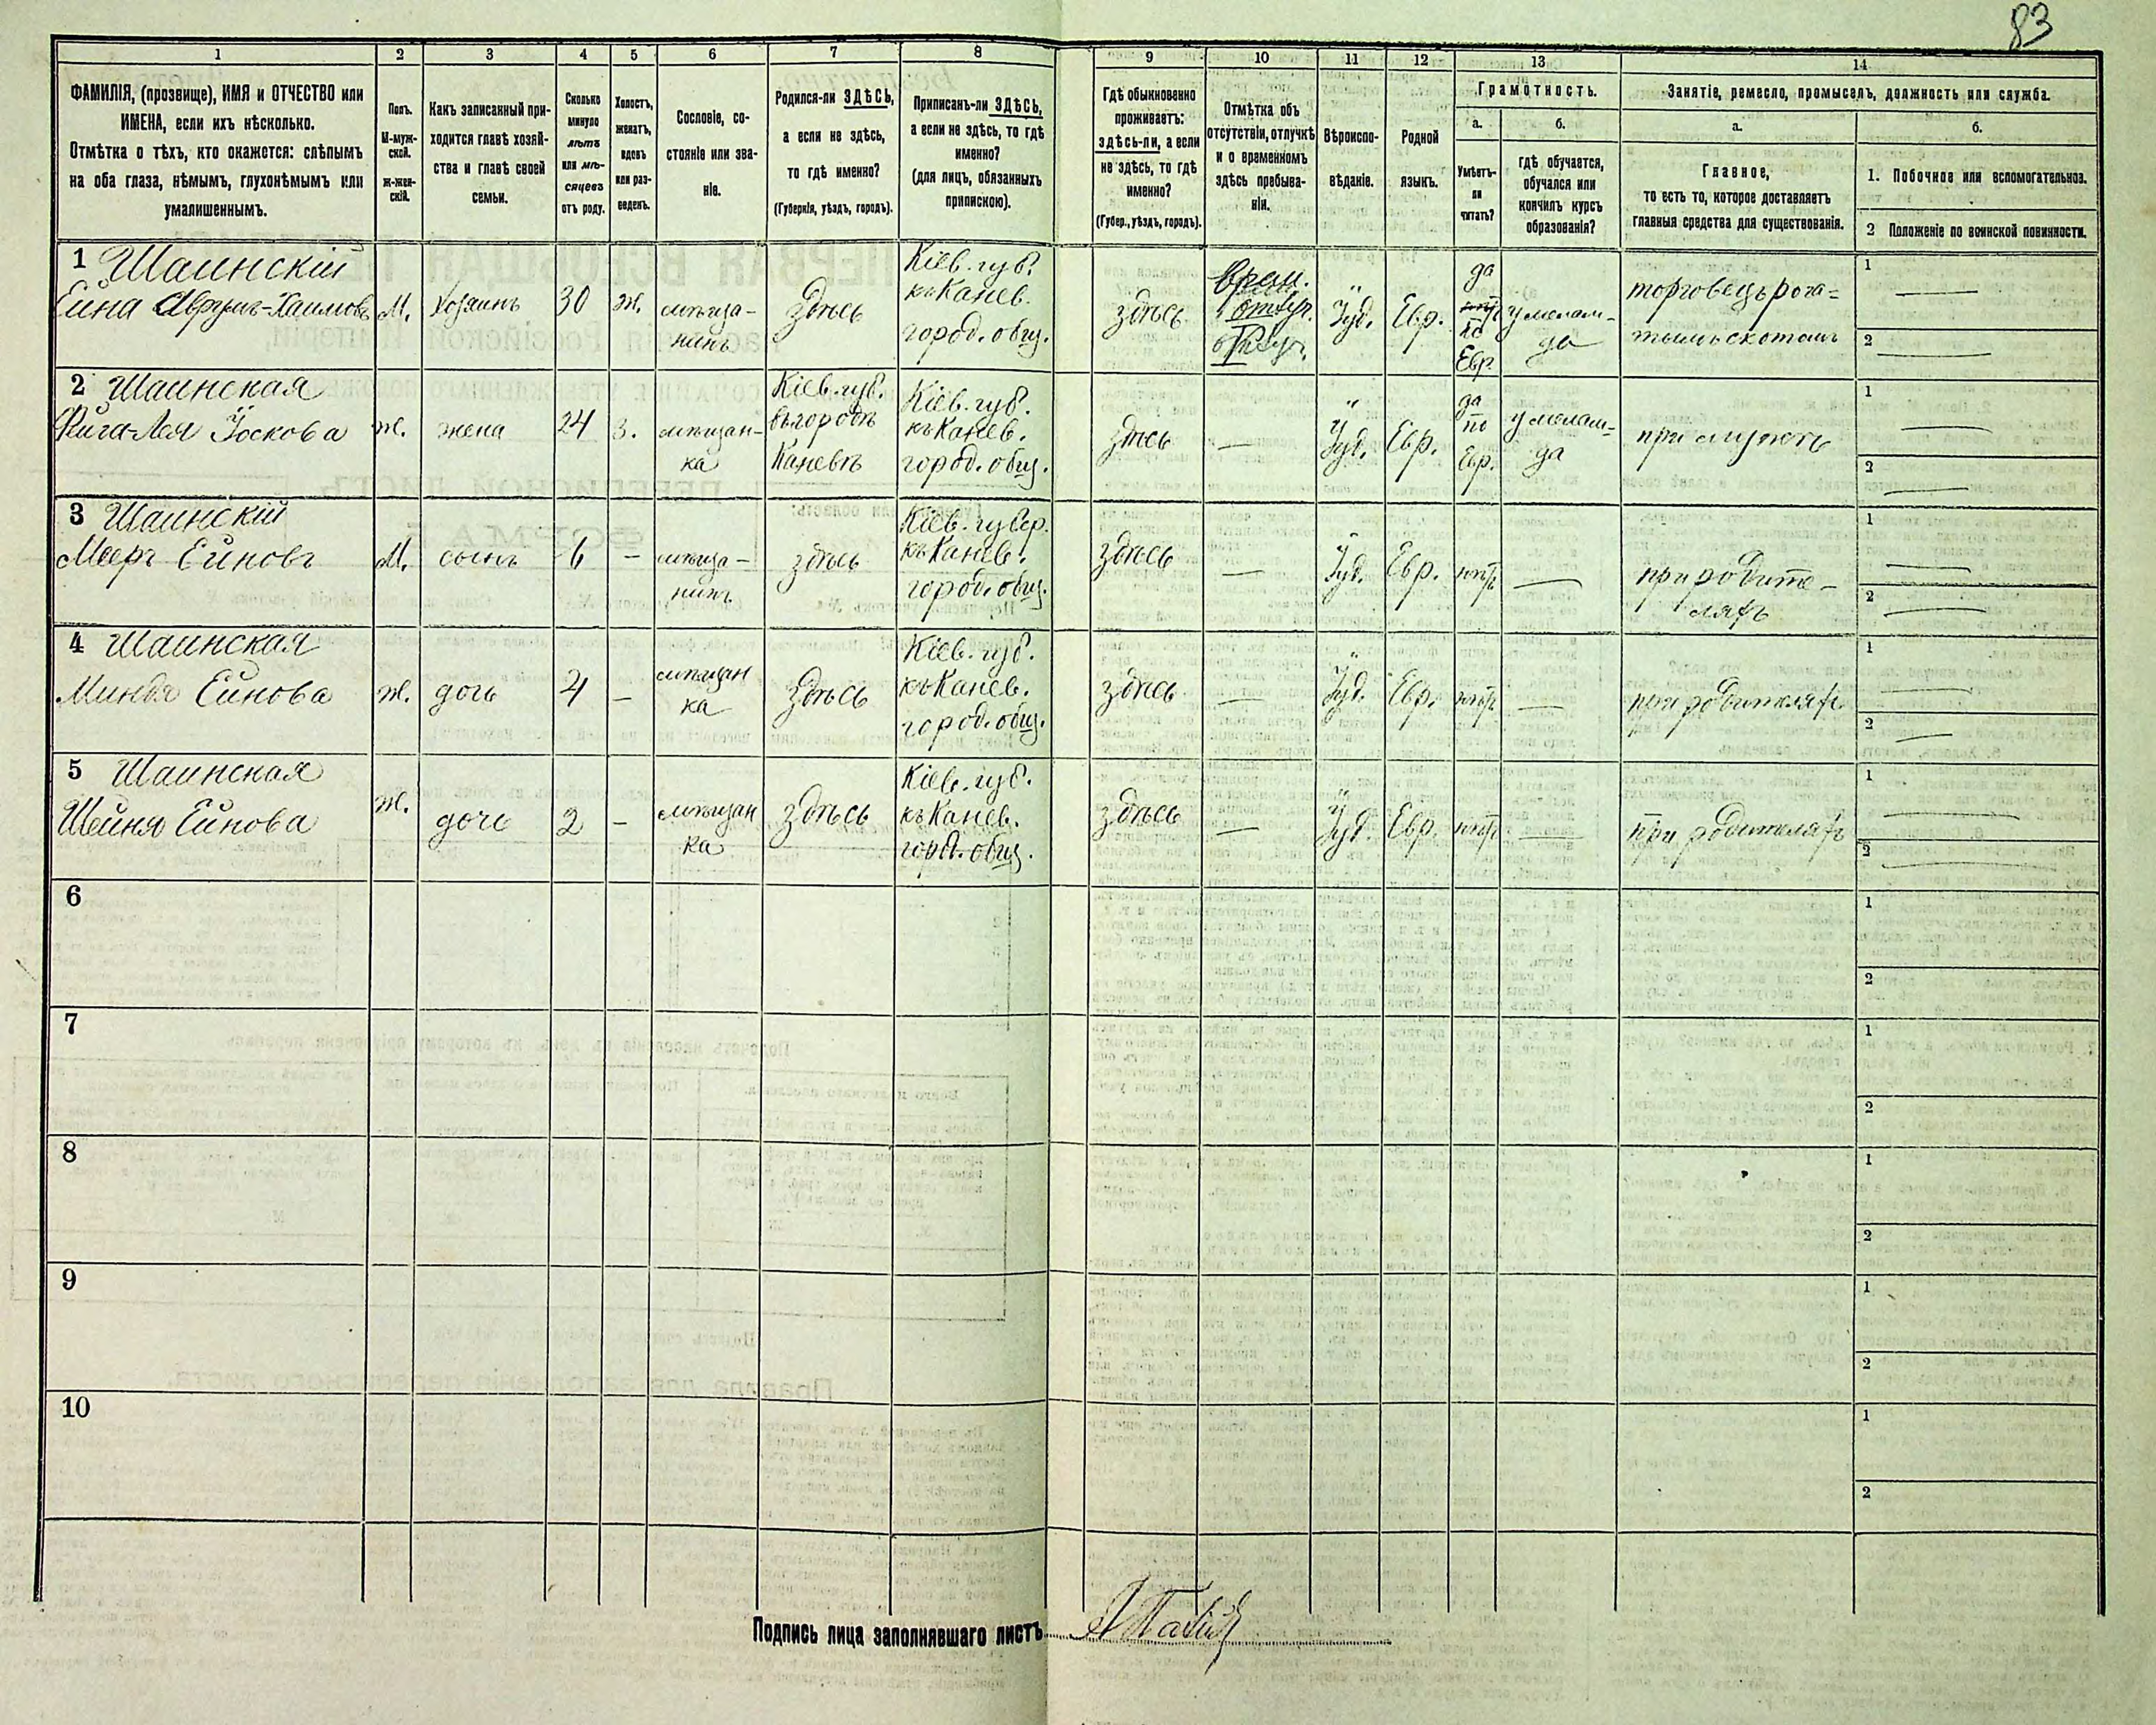 83
1 2 3 4 5 6 7 8 9 10 11 12 13 14
ФАМИЛІЯ, (прозвище), ИМЯ и ОТЧЕСТВО или
ИМЕНА, если ихъ нѣсколько.
Отмѣтка о тѣхъ, кто окажется: слѣпымъ
на оба глаза, нѣмымъ, глухонѣмымъ или
умалишеннымъ.
Полъ.
М-муж-
ской.
Ж-жен-
скій.
Какъ записанный при-
ходится главѣ хозяй-
ства и главѣ своей
семьи.
Сколько
минуло
лѣтъ
или мѣ-
сяцевъ
отъ роду.
Холостъ,
женатъ,
вдовъ
или раз-
веденъ.
Сословіе, со-
стояніе или зва-
ніе.
Родился-ли ЗДѢСЬ,
а если не здѣсь,
то гдѣ именно?
(Губернія, уѣздъ, городъ).
Приписанъ-ли ЗДѢСЬ,
а если не здѣсь, то гдѣ
именно?
(для лицъ, обязанныхъ
припискою).
Гдѣ обыкновенно
проживаетъ:
здѣсь-ли, а если
не здѣсь, то гдѣ
именно?
(Губер., уѣздъ, городъ).
Отмѣтка объ
отсутствіи, отлучкѣ
и о временномъ
здѣсь пребыва-
ніи.
Вѣроиспо-
вѣданіе.
Родной
языкъ.
Грамотность.
а.
Умѣетъ-
ли
читать?
б.
гдѣ обучается,
обучался или
кончилъ курсъ
образованія?
Занятіе, ремесло, промыселъ, должность или служба.
а.
Главное,
то есть то, которое доставляетъ
главныя средства для существованія.
б.
1. Побочное или вспомогательное.
2 Положеніе по воинской повинности.
1 Шаинскій
Ейна Аврумъ-Хаимовъ
М.
Хозяинъ
30
ж.
мѣща-
нинъ
Здѣсь
Кіев. губ.
къ Канев.
город. общ.
здѣсь
Врем.
Іуд.
Евр.
да
по
Евр.
у мелам-
да
торговецъ рога=
тымъ скотомъ
1 —
2 —
2 Шаинская
Фига-Лея Іоскова
ж.
жена
24
з.
мѣщан-
ка
Кіев. губ.
въ городѣ
Каневѣ
Кіев. губ.
къ Канев.
город. общ.
здѣсь
—
Іуд.
Евр.
да
по
Евр.
у мелам=
да
при мужѣ
1 —
2 —
3 Шаинскій
Мееръ Ейновъ
М.
сынъ
6
—
мѣща-
нинъ
здѣсь
Кіев. губер.
къ Канев.
город. общ.
здѣсь
—
Іуд.
Евр.
нѣтъ
—
при родите-
ляхъ
1 —
2 —
4 Шаинская
Миндя Ейнова
ж.
дочь
4
—
мѣщан
ка
Здѣсь
Кіев. губ.
къ Канев.
город. общ.
здѣсь
—
Іуд.
Евр.
нѣтъ
—
при родителяхъ
1 —
2 —
5 Шаинская
Шейня Ейнова
ж.
дочь
2
—
мѣщан
ка
Здѣсь
Кіев. губ.
къ Канев.
город. общ.
здѣсь
—
Іуд.
Евр.
нѣтъ
—
при родителяхъ
1 —
2 —
6
1
2
7
1
2
8
1
2
9
1
2
10
1
2
Подпись лица заполнявшаго листъ